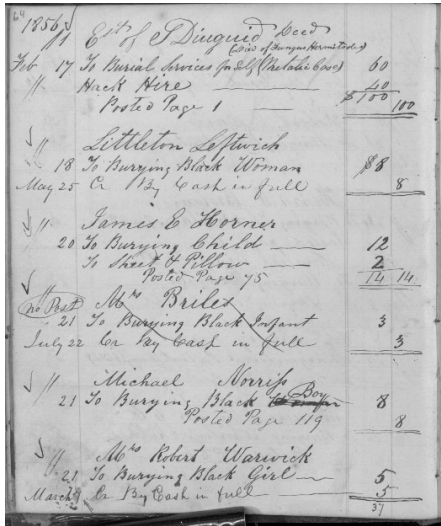 64
1856
" Est of S Diuguid Decd
(Died of Fungus Hermitodes)
Feb 17 To Burial Services for Self (Metalic Case) 60
" Hack Hire 40
$100
Posted Page 1 100
" Littleton Leftwich
18 To Burying Black Woman $8
May 25 Cr By Cash in full 8
" James E Horner
20 To Burying Child 12
To Sheet & Pillow 2
Posted Page 75 14 14
" Mrs Briles
no Post
21 To Burying Black Infant 3
July 22 Cr By Cash in full 3
" Michael Norriss
Boy
21 To Burying Black 8
Posted Page 119 8
" Mrs Robert Warwick
21 To Burying Black Girl 5
March Cr By Cash in full 5
37